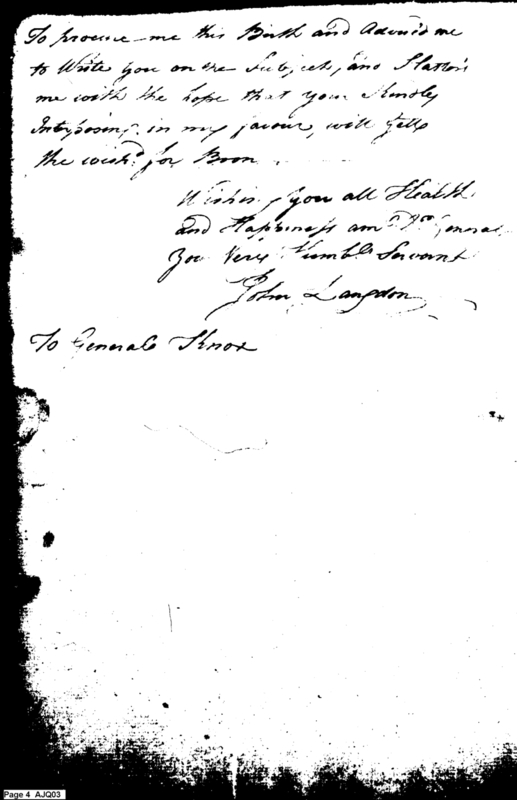 To procure me this Birth and Advis'd me
to Write you on the Subject, and Flatters
me with the hope that your Kindly
Interposing in my favour, will
the wish'd for Boon
Wishing you all Health
and Happiness am Dr General
your Very Humble Servant
John Langdon
To Generale Knox
Page 4 AJQ03